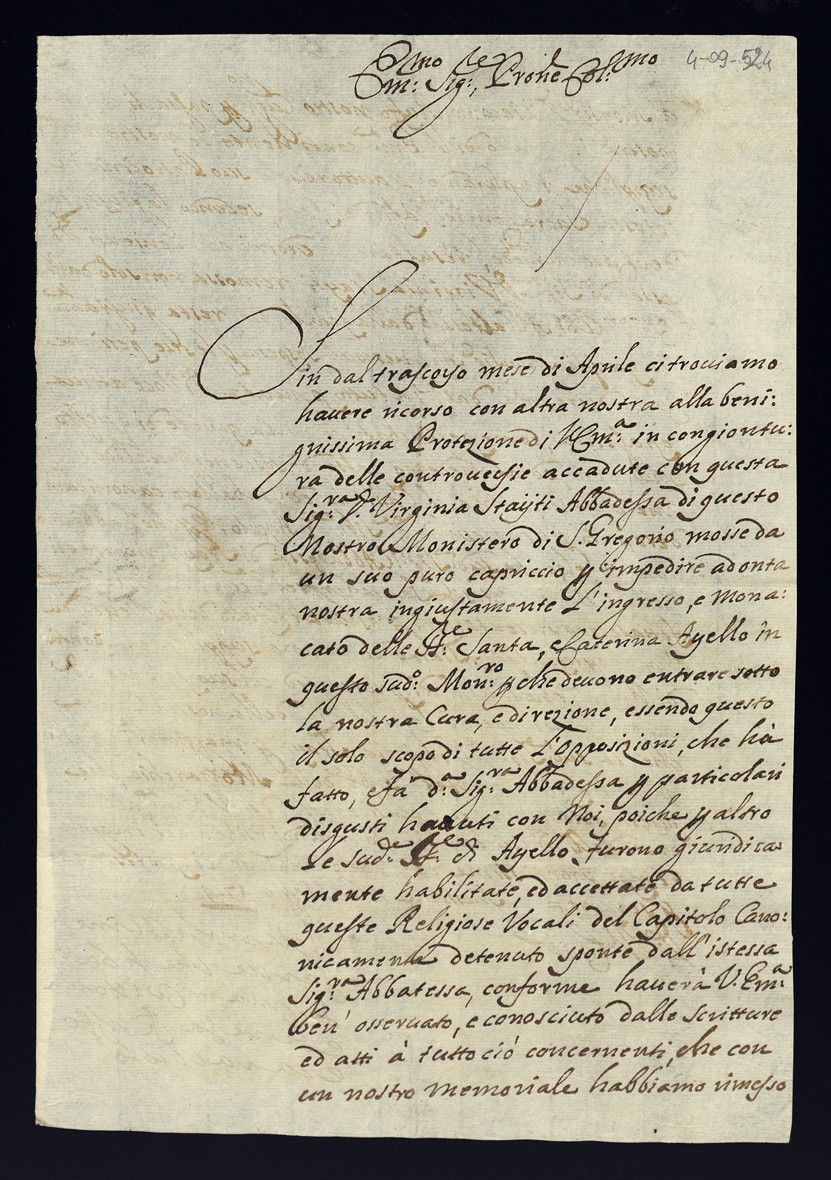 Em:mo Sig:re, Prone Col:mo
4-09-524
Sin dal trascorso mese di Aprile ci troviamo
havere ricorso con altra nostra alla beni:
gnissima Protezione di V.Em:a in congiontu:
ra delle controversie accadute con questa
Sig:ra D. Virginia Stayti Abbadessa di questo
Nostro Monistero di S. Gregorio mosse da
un suo puro capriccio p impedire ad onta
nostra ingiustamente l'ingresso, e mona:
cato delle Santa, e Caterina Ayello in
questo sud:o Mon:ro p che devono entrare sotto
la nostra Cura, e direzione, essendo questo
il solo scopo di tutte l'opposizioni, che hà
fatto, e fà d:a Sig:ra Abbadessa p particolari
disgusti havuti con Noi, poiche p altro
le sud:e di Ayello furono giuridica:
mente habilitate, ed accettate da tutte
queste Religiose Vocali del Capitolo Cano:
nicamente detenuto sponte dall'istessa
Sig:ra Abbatessa, conforme haverà V.Em:a
ben' osservato, e conosciuto dalle scritture
ed atti à tutto ciò concernenti, che con
un nostro memoriale habbiamo rimesso